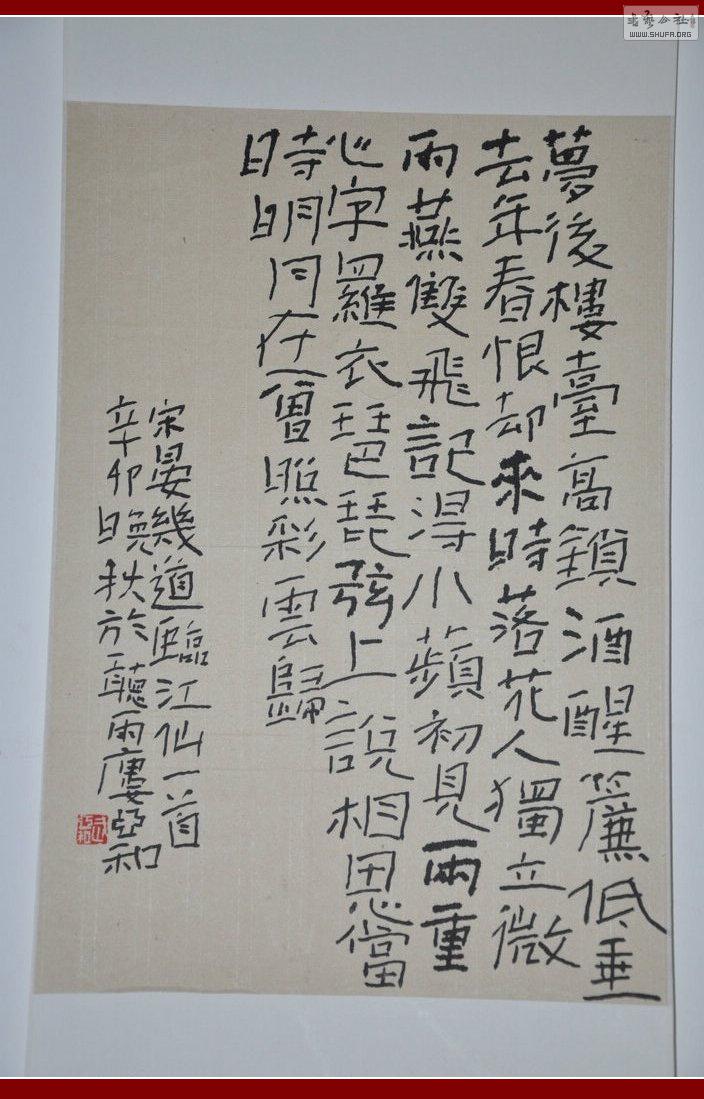 夢後樓臺高鎖酒醒簾低垂
去年春恨却來時落花人獨立微
雨燕雙飛記得小蘋初見兩重
心字羅衣琵琶弦上說相思當
時明月在曾照彩雲歸
宋晏幾道臨江仙一首
辛卯晚秋於聽雨廔亞和
WWW.SHUFA.ORG